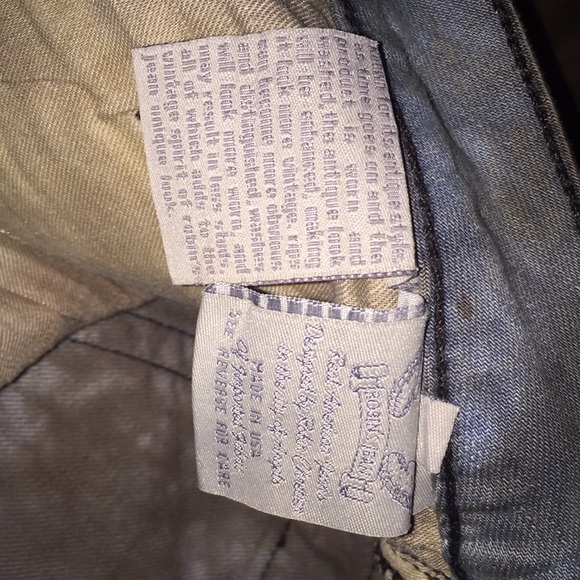 as time goes on and the
product is worn and
washed, the antique look
will be enhanced, making
it look more vintage. rips
will become more obvious
and distinguished, washes
will look more worn and
may result in less shade
all of which adds to the
vintage spirit of robin's
jean unique look.
ROBIN'S JEAN
Real American Jeans
Designed by Robin Chretien
in the city of Angels
MADE IN USA
Of Imported Fabric
SEE REVERSE FOR CARE